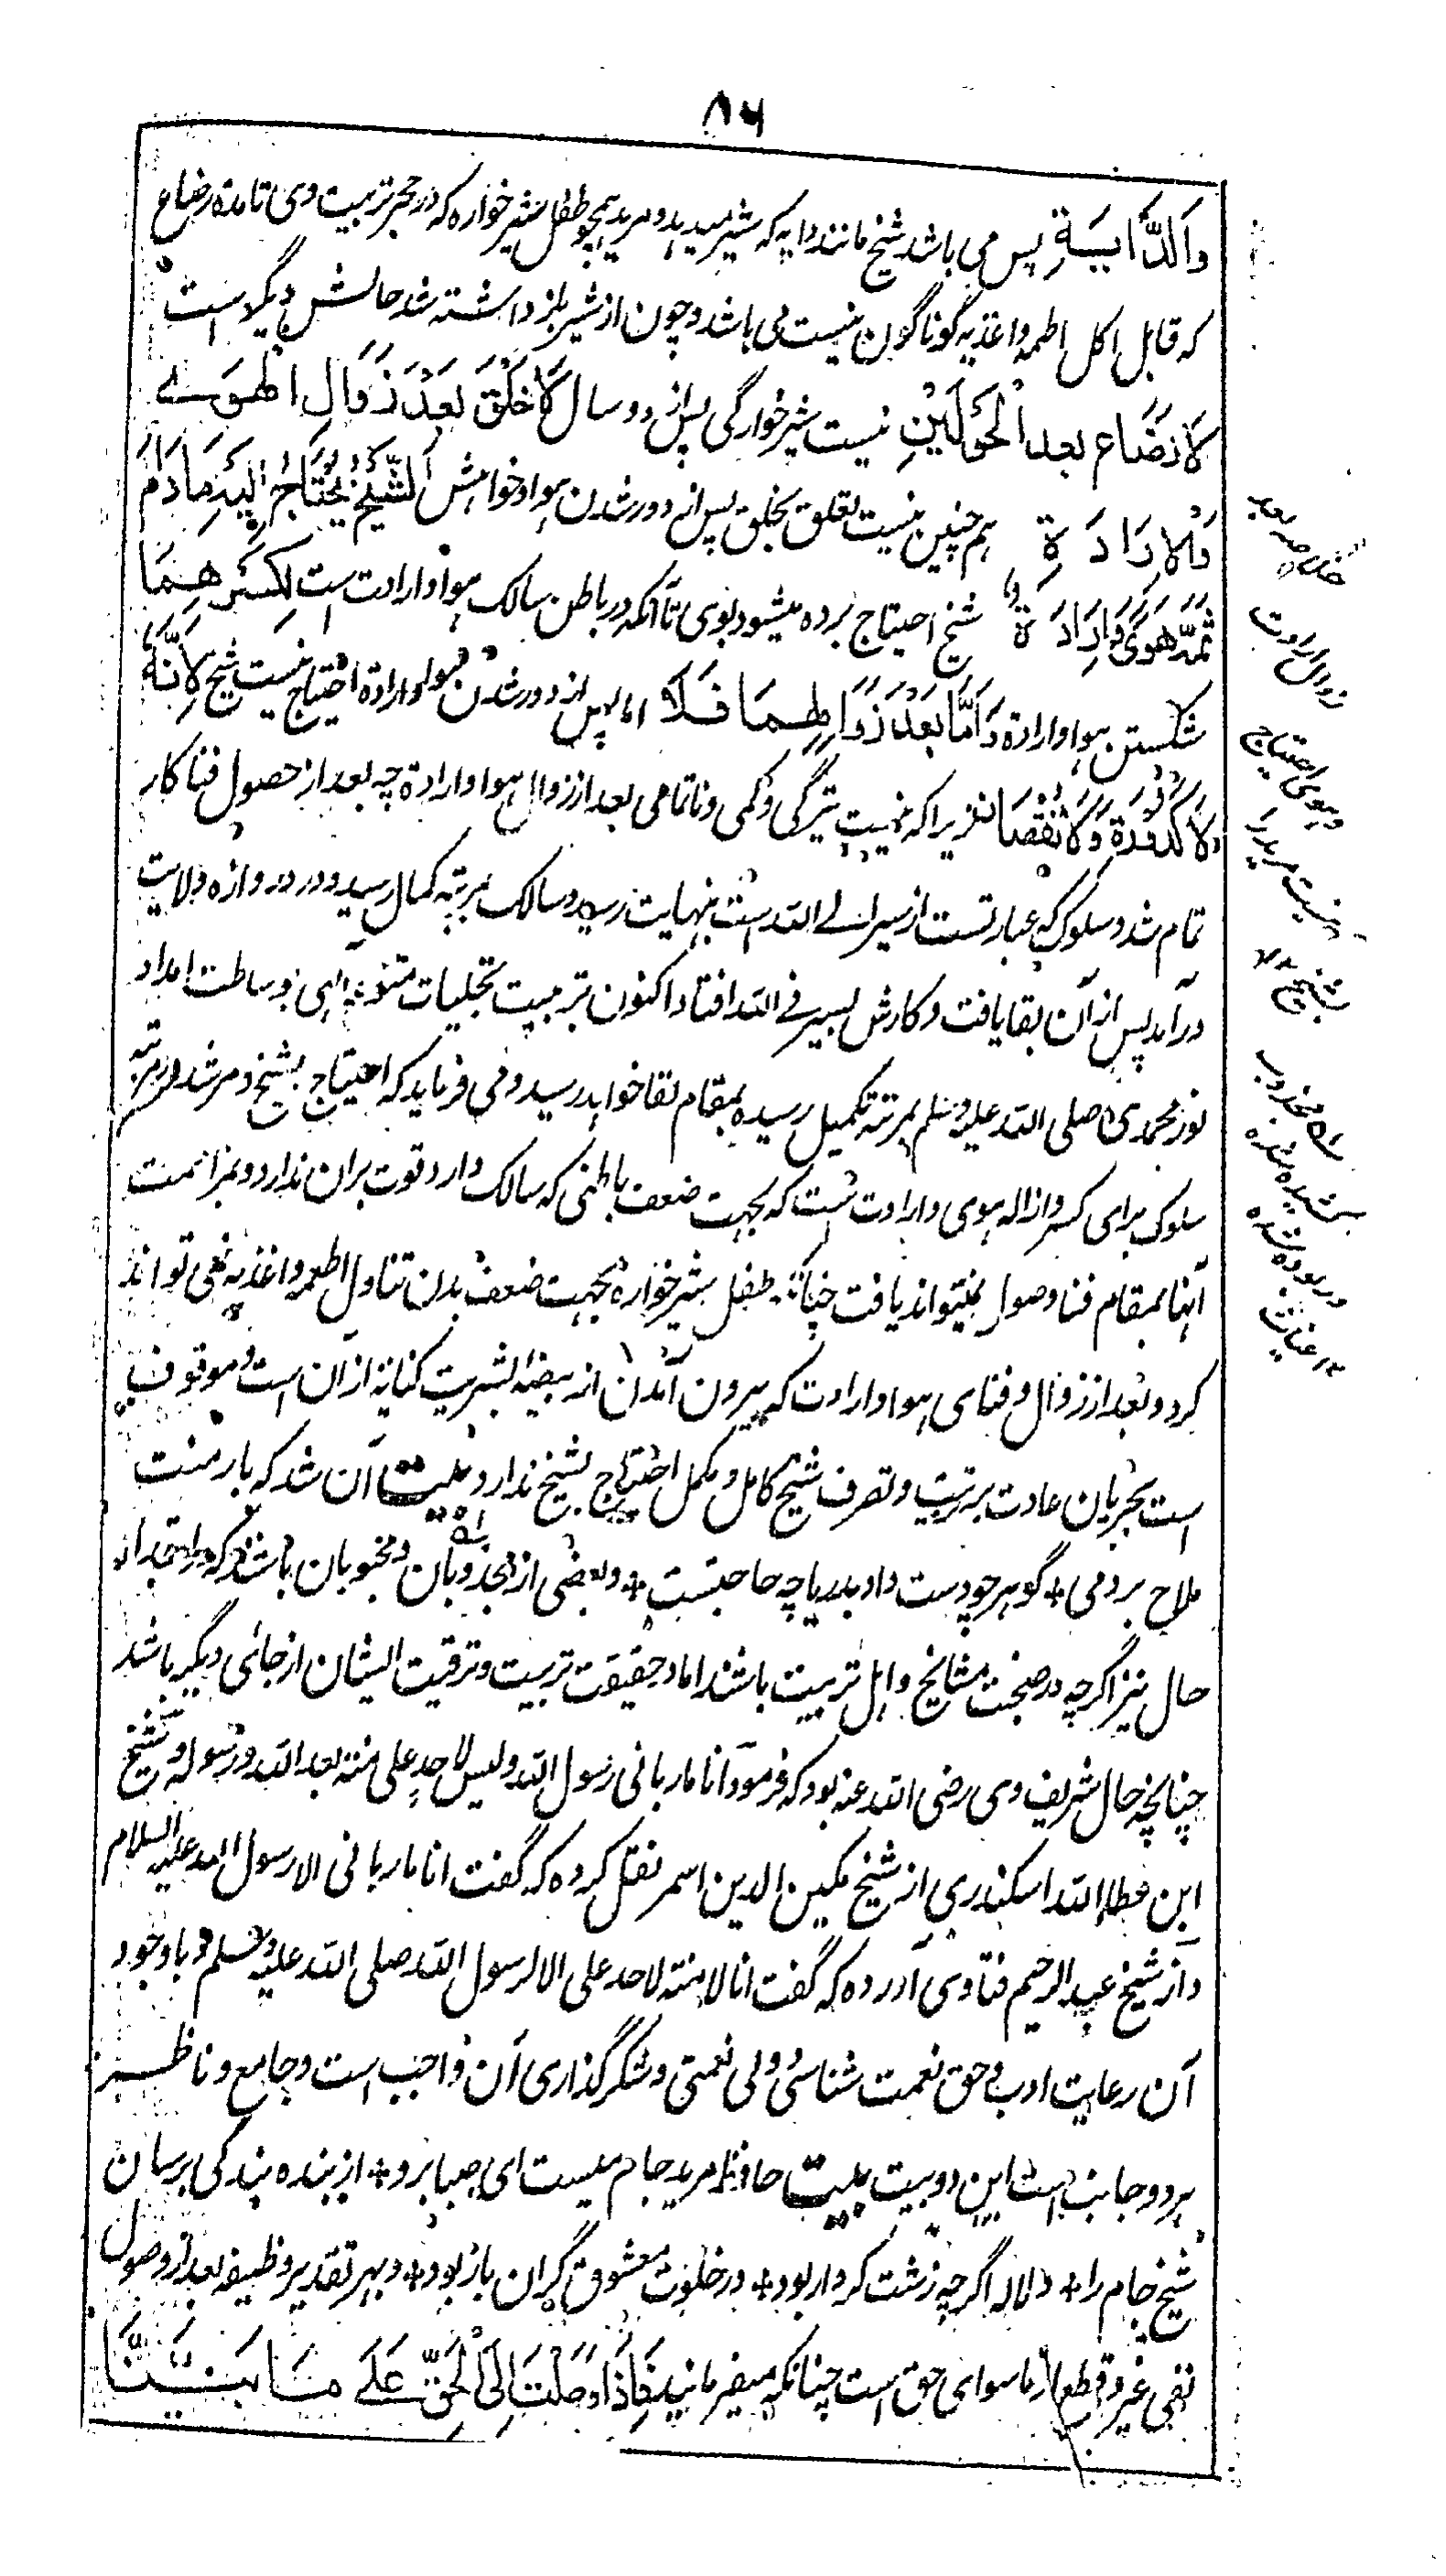 ۸۶
وَالدَّايَةِ پس می باشد شیخ مانند دایه که شیر میدهد و مرید همچو طفل شیرخواره که در حجر تربیت وی تا مدة رضاع
که قابل اکل اطعمه و اغذیه گوناگون نیست می باشد و چون از شیر باز داشته شد حالش دیگر است
لَا رَضَاعَ بعد الْحَوْلَيْنِ نیست شیرخوارگی پس از دو سال كَا خَلْقَ بَعْدَ زَوَالِ الْهَوٰے
وَالْاِرَادَةِ هم چنین نیست تعلق بخلق پس از دور شدن هوا و خواهش اَلشَّيْخُ يُحْتَاجُ اِلَيْهِ مَا دَامَ
ثَمَّ هَوًى وَاِرَادَةٌ شیخ احتیاج برده میشود بوی تا آنکه در باطن سالک هوا و ارادت ست لِكَسْرِهِمَا
شکستن هوا و ارادة وَاَمَّا بَعْدَ زَوَالِهِمَا فَلَا اما پس از دور شدن هوا و ارادة احتیاج نیست شیخ لِاَنَّهٗ
لَا كُدُوْرَةَ وَلَا نُقْصَانَ زیرا که نیست تیرگی و کمی و ناتمامی بعد از زوال هوا و ارادة چه بعد از حصول فنا کار
تمام شد و سلوک که عبارتست از سیر الے الله است بنهایت رسید و سالک بمرتبه کمال رسید و در دروازه ولایت
درآمد پس از آن بقا یافت و کارش بسیر فے الله افتاد اکنون تربیت تجلیات متنوعه الٰهی وساطت امداد
نور محمدی صلی الله علیه وسلم بمرتبه تکمیل رسیده بمقام لقا خواهد رسید و می فرماید که احتیاج بشیخ و مرشد در مرتبه
سلوک برای کسر و ازاله هوی و ارادت ست که بجهت ضعف باطنی که سالک دارد قوت بران ندارد و بمزاحمت
آنها بمقام فنا وصول نمیتواند یافت چنانکه طفل شیرخواره بجهت ضعف بدن تناول اطعمه و اغذیه نمی تواند
کرد و بعد از زوال و فنای هوا و ارادت که بیرون آمدن از بیضه بشریت کنایه از آن است و موقوف
است بجریان عادت بر تربیت و تصرف شیخ کامل و مکمل احتیاج بشیخ ندارد بیت آن شد که بار منت
ملاح بردمی * گوهر چو دست داد بدریا چه حاجتست * و بعضی از مجذوبان و محبوبان باشند که در ابتداء
حال نیز اگرچه در صحبت مشایخ و اهل تربیت باشند اما در حقیقت تربیت و ترقیت ایشان از جائی دیگر باشد
چنانچه حال شریف وی رضی الله عنه بود که فرمود انا ما ربانی رسول الله و لیس لاحد علی منة بعد الله و رسوله و شیخ
ابن عطاء الله اسکندری از شیخ مکین الدین اسمر نقل کرده که گفت انا ما ربانی الا رسول الله علیه السلام
و از شیخ عبد الرحیم قناوی آورده که گفت انا لا منة لاحد علی الا لرسول الله صلی الله علیه وسلم و باوجود
آن رعایت ادب و حق نعمت شناسی ولی نعمتی و شکرگذاری آن واجب است و جامع و ناظر
هر دو جانب است این دو بیت بیت حافظ مرید جام میست ای صبا برو * از بنده بندگی برسان
شیخ جام را * دلاله اگرچه زشت کردار بود * در خلوت معشوق گران بار بود * و بهر تقدیر وظیفه بعد از وصول
نفی غیر و قطع از ماسوای حق است چنانکه میفرمایند فَاِذَا وَصَلْتَ اِلَى الْحَقِّ عَلٰے مَا بَيَّنَّا
خلاصه بعد
زوال ارادت
و هوی احتیاج
نیست مرید را
بشیخ ۱۲
مجذوب
کشیده شده
و ربوده شده
۱۲ غیاث